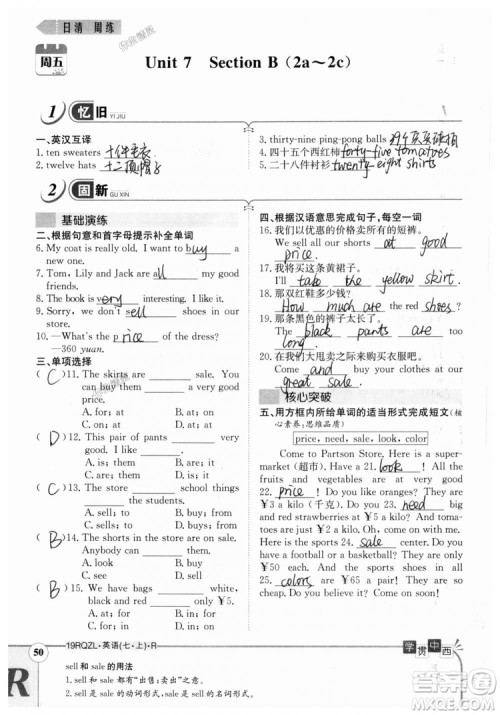 日清 周练
周五
Unit 7 Section B（2a～2c）
1 忆旧 YI JIU
一、英汉互译
1. ten sweaters 十件毛衣
2. twelve hats 十二顶帽子
3. thirty-nine ping-pong balls 39个乒乓球拍
4. 四十五个西红柿 forty-five tomatoes
5. 二十八件衬衫 twenty-eight shirts
2 固新 GU XIN
基础演练
二、根据句意和首字母提示补全单词
6. My coat is really old. I want to buy a
new one.
7. Tom, Lily and Jack are all my good
friends.
8. The book is very interesting. I like it.
9. Sorry, we don't sell shoes in our
store.
10. —What's the price of the dress?
—360 yuan.
三、单项选择
( C )11. The skirts are ____ sale. You
can buy them ____ a very good
price.
A. for; at B. at; on
C. on; at D. on; for
( )12. This pair of pants ____ nice. I
want to buy ____.
A. is; them B. are; it
C. is; it D. are; them
( )13. The store ____ school things
____ the students.
A. buy; to B. sells; to
C. buys; to D. sell; to
( B )14. The shorts in the store are on sale.
Anybody can ____ them.
A. look B. afford
C. see D. sell
( B )15. We have bags ____ ￥10
____ boys.
A. for; for B. at; for
C. for; in D. at; to
四、根据汉语意思完成句子，每空一词
16. 我们以优惠的价格卖所有的短裤。
We sell all our shorts at good
price.
17. 我将买这条黄裙子。
I'll take the yellow skirt.
18. 那双红鞋多少钱？
How much are the red shoes?
19. 那条黑色的裤子太长了。
The black pants are too
long.
20. 在我们的大甩卖时来买衣服吧。
Come and buy clothes at our
great sale.
核心突破
五、用方框内所给单词的适当形式完成短文（核
心素养：思维品质）
price, need, sale, look, color
Come to Partson Store. Here is a super-
market (超市). You can 21. look! All the
fruits and vegetables are at very good
22. price! Do you like oranges? They are
￥5 a kilo (千克). Or do you 23. need big
and red strawberries at ￥5 a kilo? And toma-
toes are ￥2 a kilo! Oh, come on with me.
This is a sports 24. sale center. Do you like
to have a football or a basketball? They are
￥50. And the sports shoes in all
25. colors are for ￥180! Do you like
them?
50
19RQZL·英语(七·上)·R
学贯中西
sell 和 sale 的用法
1. sell 和 sale 都有“出售；卖”之意。
2. sell 为动词形式，sale 为 sell 的名词形式。